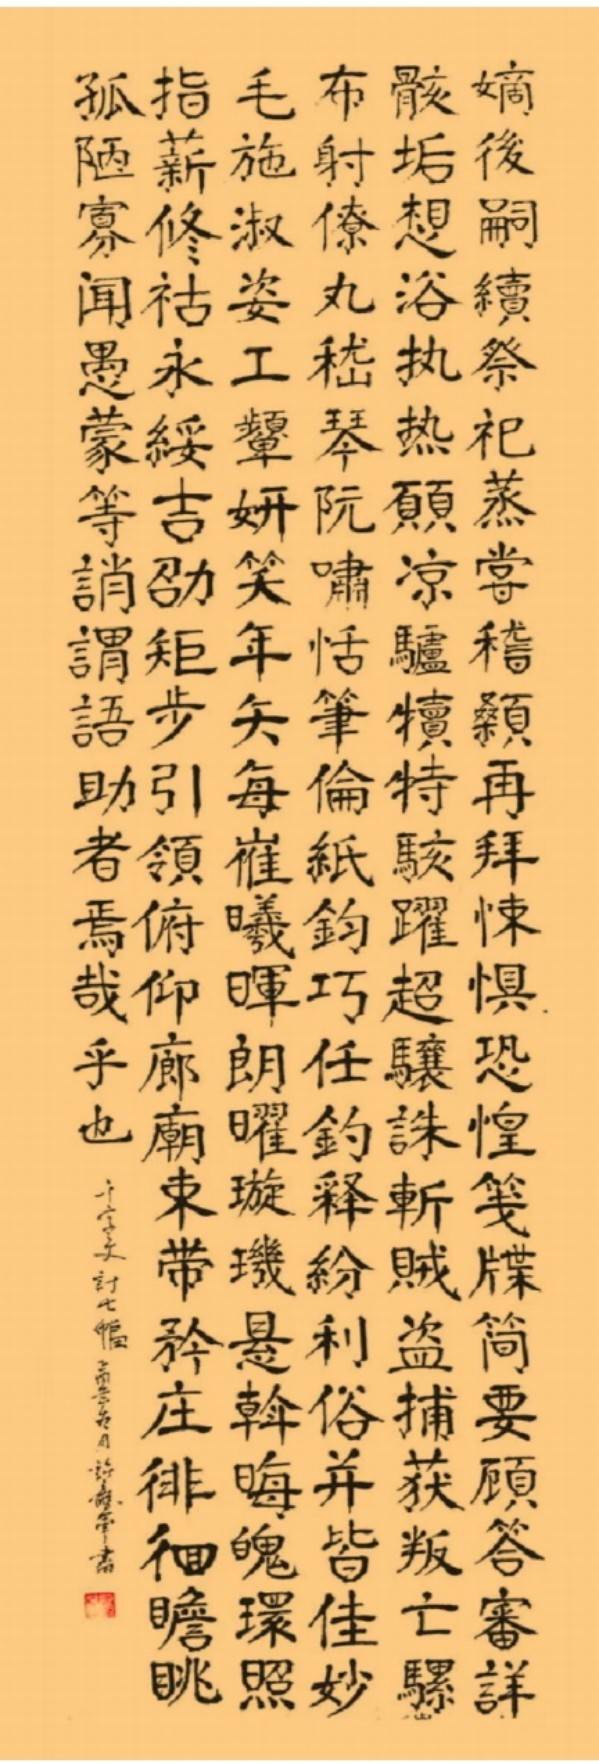 嫡後嗣續祭祀蒸尝稽顙再拜悚惧恐惶笺牒简要顾答審詳
骸垢想浴执热願凉驢犢特駭躍超驤誅斬賊盗捕获叛亡騾
布射僚丸嵇琴阮嘯恬筆倫紙鈞巧任釣释紛利俗并皆佳妙
毛施淑姿工颦妍笑年矢每嶊曦暉朗曜璇璣悬斡晦魄環照
指薪修祜永綏吉劭矩步引領俯仰廊廟束带矜庄徘徊瞻眺
孤陋寡闻愚蒙等誚謂語助者焉哉乎也
千字文計七幅